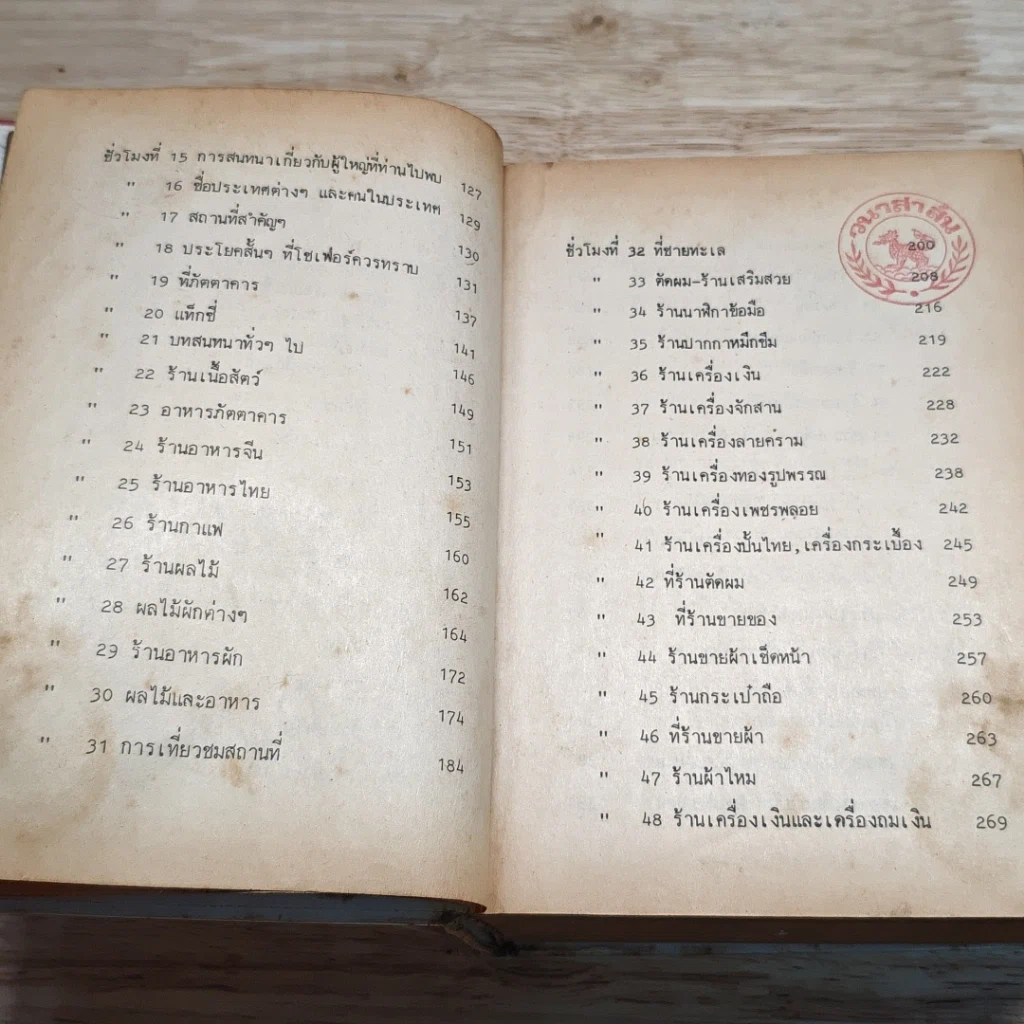 ชั่วโมงที่ 15 การสนทนาเกี่ยวกับผู้ใหญ่ที่ท่านไปพบ 127
" 16 ชื่อประเทศต่างๆ และคนในประเทศ 129
" 17 สถานที่สำคัญๆ 130
" 18 ประโยคสั้นๆ ที่โชเฟอร์ควรทราบ 131
" 19 ที่ภัตตาคาร 137
" 20 แท็กซี่ 141
" 21 บทสนทนาทั่วๆ ไป 146
" 22 ร้านเนื้อสัตว์ 149
" 23 อาหารภัตตาคาร 151
" 24 ร้านอาหารจีน 153
" 25 ร้านอาหารไทย 155
" 26 ร้านกาแฟ 160
" 27 ร้านผลไม้ 162
" 28 ผลไม้ผักต่างๆ 164
" 29 ร้านอาหารผัก 172
" 30 ผลไม้และอาหาร 174
" 31 การเที่ยวชมสถานที่ 184
วนาสาส์น
ชั่วโมงที่ 32 ที่ชายทะเล 200
" 33 ตัดผม-ร้านเสริมสวย 208
" 34 ร้านนาฬิกาข้อมือ 216
" 35 ร้านปากกาหมึกซึม 219
" 36 ร้านเครื่องเงิน 222
" 37 ร้านเครื่องจักสาน 228
" 38 ร้านเครื่องลายคราม 232
" 39 ร้านเครื่องทองรูปพรรณ 238
" 40 ร้านเครื่องเพชรพลอย 242
" 41 ร้านเครื่องปั้นไทย,เครื่องกระเบื้อง 245
" 42 ที่ร้านตัดผม 249
" 43 ที่ร้านขายของ 253
" 44 ร้านขายผ้าเช็ดหน้า 257
" 45 ร้านกระเป๋าถือ 260
" 46 ที่ร้านขายผ้า 263
" 47 ร้านผ้าไหม 267
" 48 ร้านเครื่องเงินและเครื่องถมเงิน 269